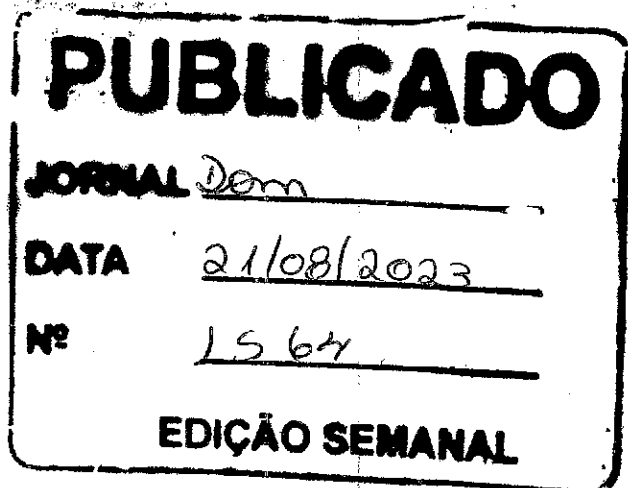 PUBLICADO
JORNAL Dom
DATA 21/08/2023
Nº 1564
EDIÇÃO SEMANAL